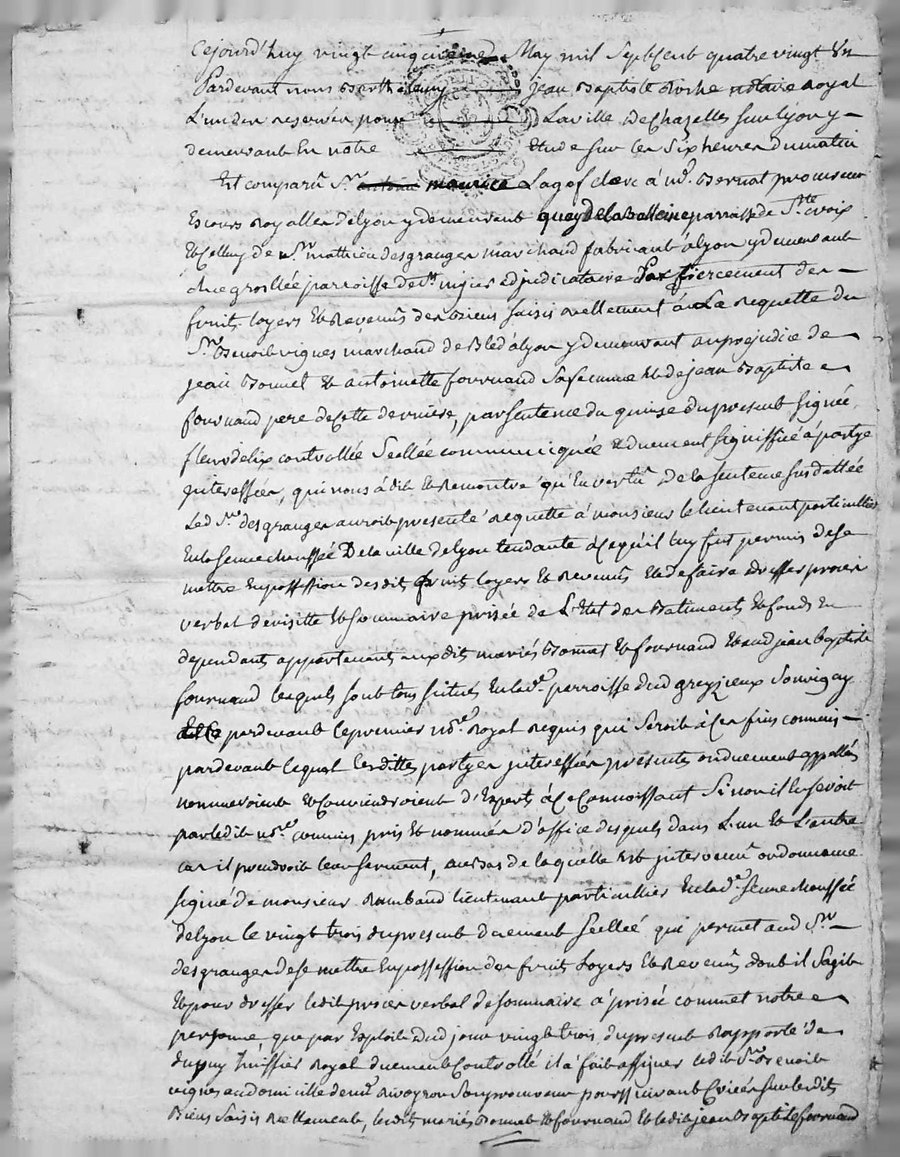 Cejourd'huy vingt cinquieme May mil Sept Cent quatre vingt Un
Pardevant nous Barthelemy jean Baptiste Roche notaire royal
L'un des reservés pour La ville de Chazelles sur lyon y
demeurant En notre Etude sur les Six heures du matin
Est comparû Sr. maurice Lagof clerc à me. Bernat procureur
Es cours Royalles de lyon y demeurant quay de la Balleine parroisse de Ste. croix
Et Celluy de sr. mathieu desgranges marchand fabricant à lyon y demeurant
rue groslée parroisse de st. nizier adjudicataire Par tiercement des
fruits loyers Et Revenus des biens saisis réellement à La requette du
Sr. Benoit vignes marchand de Bled à lyon y demeurant au prejudice de
jean Bonnet Et antoinette fournand Sa femme Et de jean Baptiste
fournand pere de Cette derniere, par sentence du quinze du present signée
fleurdelix controllée Scellée communiquée Et duement signiffiée à partye
interessées, qui nous à dit Et Remontré qu'En vertû de la sentence susdattée
Led. Sr. desgranges auroit presenté requette à monsieur le lieutenant particuillier
En la Sennechaussée De la ville de lyon tendante à Ce qu'il luy fut permis de se
mettre En possession desdits fruits loyers Et Revenus Et de faire dresser proces
verbal de visitte Et Sommaire prisée de L'Etat des Batiments Et fonds En
dependants appartenants auxdits mariés Bonnet Et fournand Et aud. jean baptiste
fournand lesquels sont tous situés En lade. parroisse dud. grezieux Souvigny
pardevant le premier nore. Royal requis qui Seroit à Ces fins commis
pardevant lequel lesdittes partyes interessées presents ou duement appellés
nommeroient Et Conviendroient d'Experts à Ce Connoissant Si non il Le seroit
par ledit nore. commis pris Et nommés d'office desquels dans L'un Et L'autre
cas il prendroit leur serment, au bas de laquelle Est intervenû ordonnance
signé de monsieur Rambaud lieutenant particuillier En lade. Sennechaussée
de lyon le vingt trois du present duement scellée qui permet aud. Sr.
desgranges de se mettre En possession des fruits Loyers Et Revenus dont il S'agit
Et pour dresser ledit proces verbal de sommaire à prisée commet notre
personne, que par Exploit dud. jour vingt trois du present Rapporté de
dupuy huissier Royal duement Controllé il à fait assigner ledit Sr. Benoit
vignes au domicille de me. Son procureur poursuivant Criées sur lesdits
Biens Saisis Reellement, lesdits mariés Bonnet Et fournand Et ledit jean Baptiste fournand